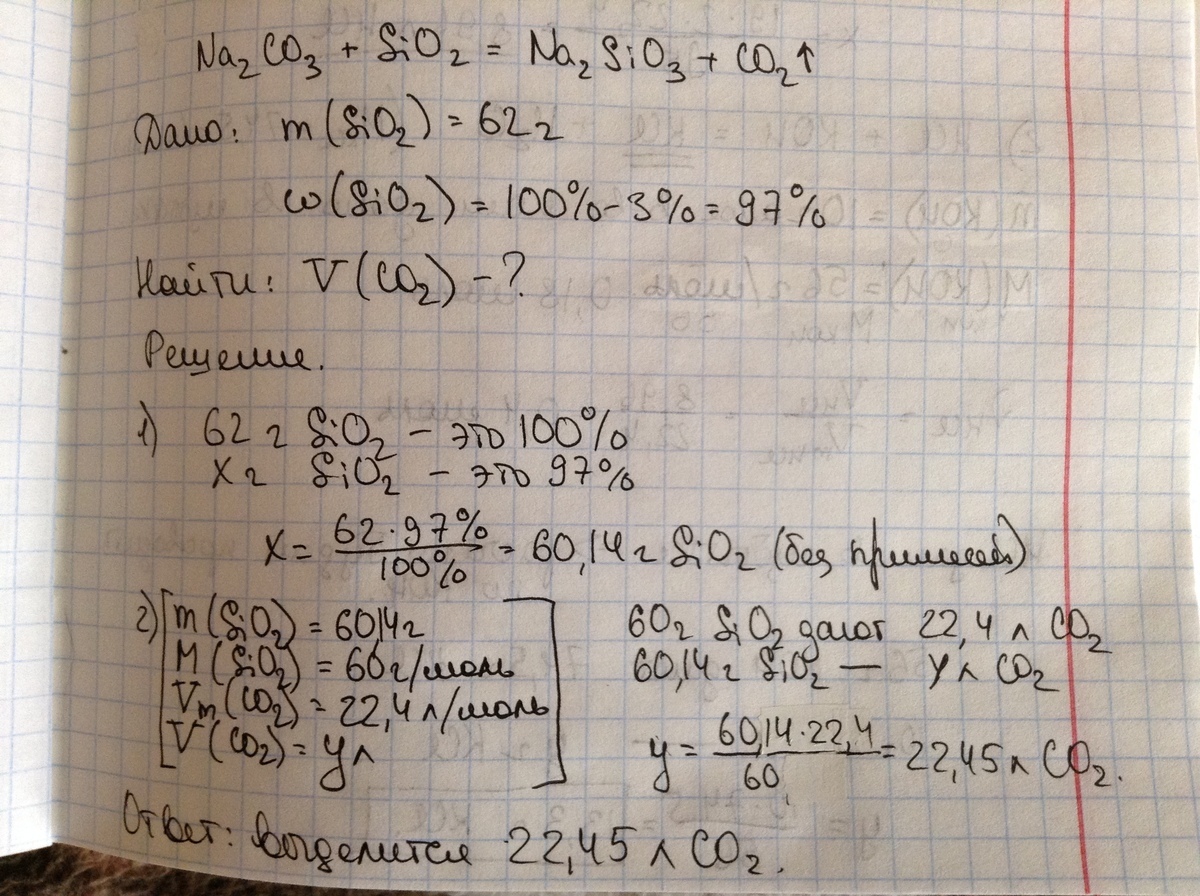 Na₂CO₃ + SiO₂ = Na₂SiO₃ + CO₂↑
Дано: m(SiO₂) = 62 г
ω(SiO₂) = 100% - 3% = 97%
Найти: V(CO₂) - ?
Решение.
1) 62 г SiO₂ - это 100%
x г SiO₂ - это 97%
x = 62·97% / 100% = 60,14 г SiO₂ (без примесей)
2) m(SiO₂) = 60,14 г
M(SiO₂) = 60 г/моль
Vm(CO₂) = 22,4 л/моль
V(CO₂) = y л
60 г SiO₂ дают 22,4 л CO₂
60,14 г SiO₂ — y л CO₂
y = 60,14·22,4 / 60 = 22,45 л CO₂.
Ответ: выделится 22,45 л CO₂.